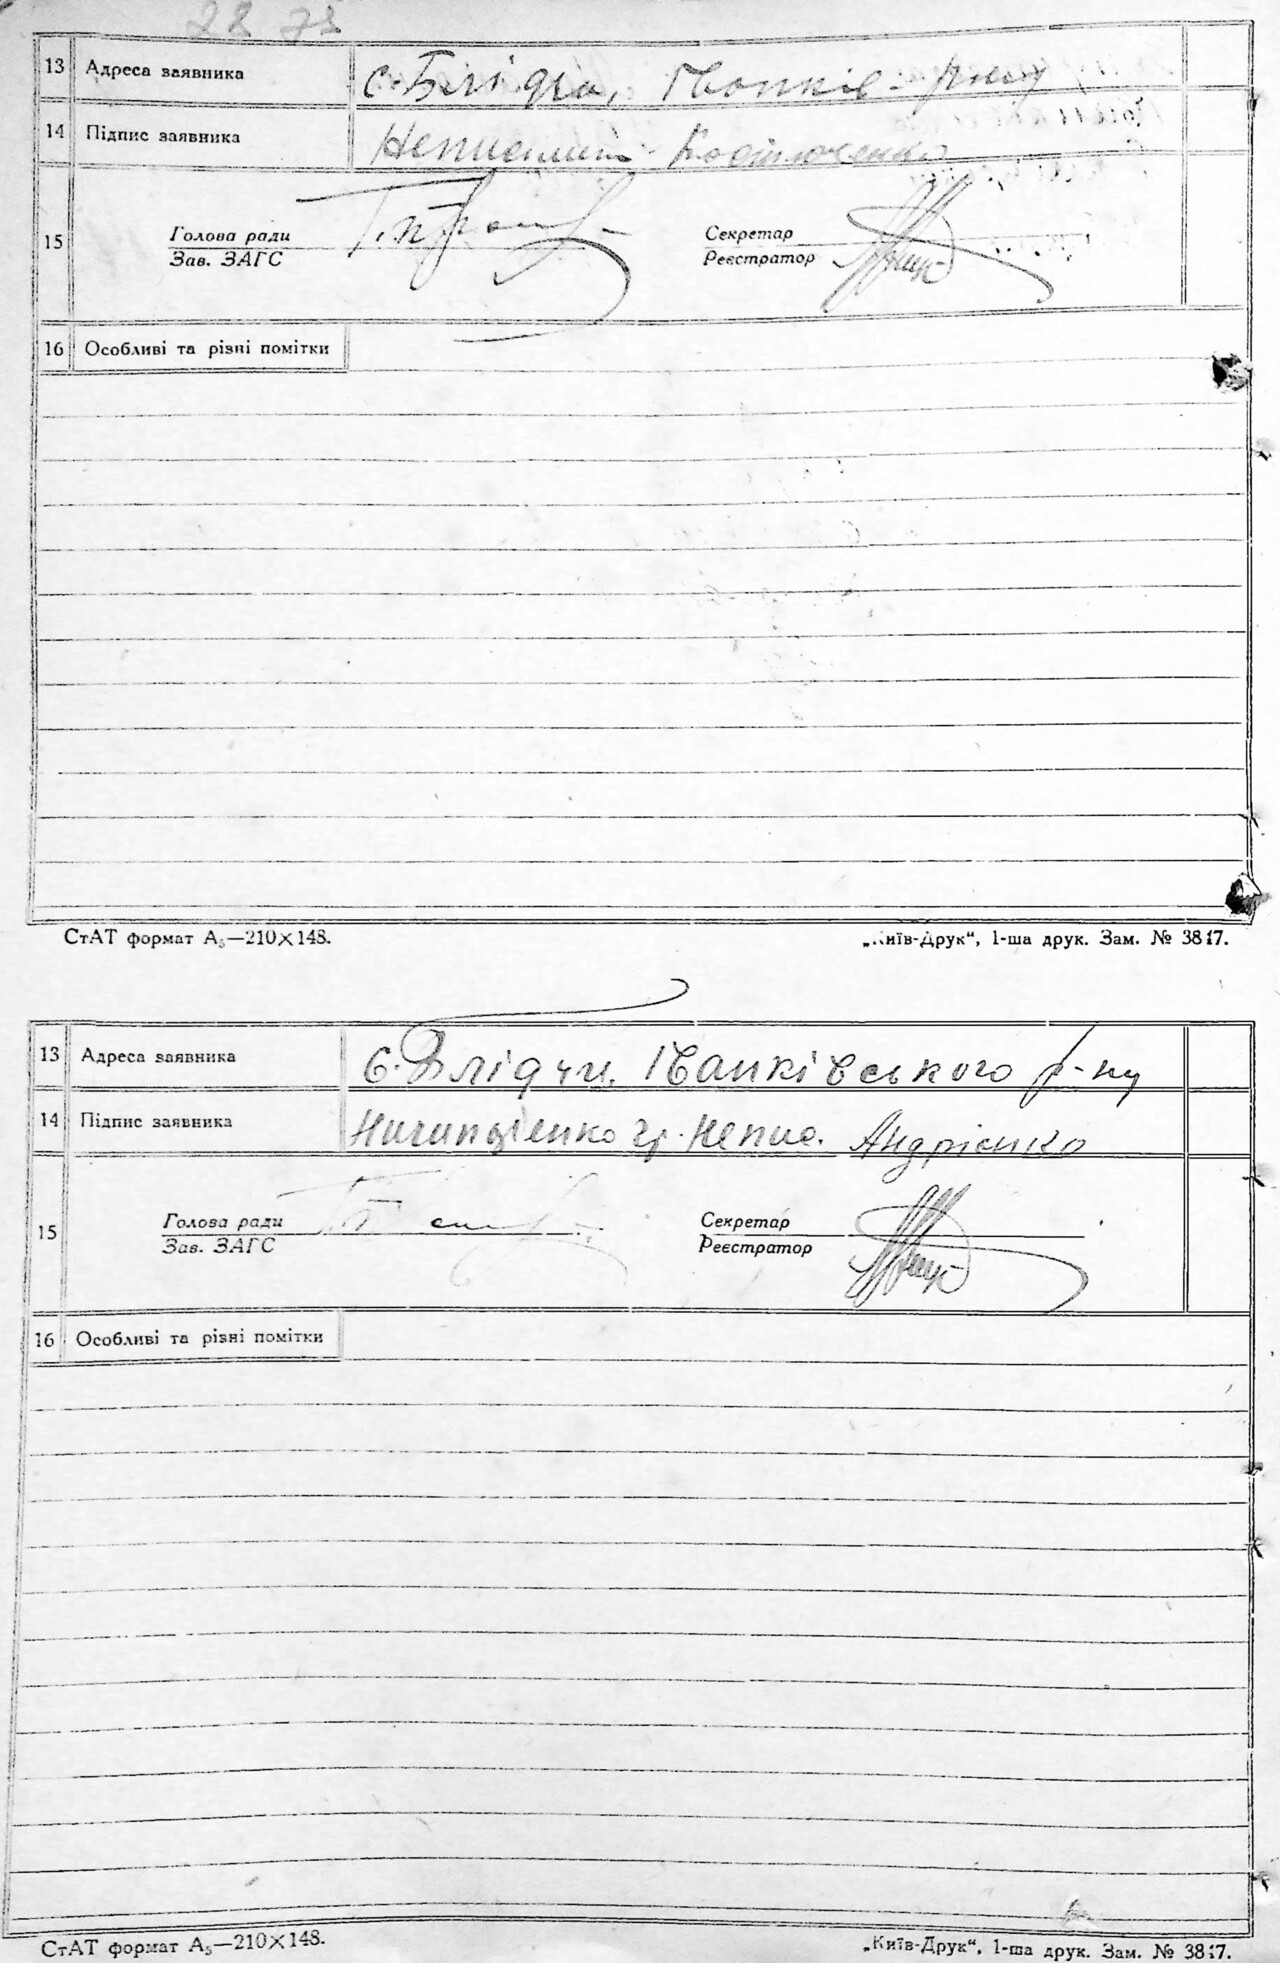 28 73
13 Адреса заявника с. Блідча, Іванків. р-ну
14 Підпис заявника Неписьмен. Костюченко
Голова ради Секретар
15
Зав. ЗАГС Реєстратор
16 Особливі та різні помітки
СтАТ формат А₅—210×148. „Київ-Друк“, 1-ша друк. Зам. № 3817.
13 Адреса заявника с. Блідчи, Іванківського р-ну
14 Підпис заявника гр. Непис. Андрієнко
Голова ради Секретар
15
Зав. ЗАГС Реєстратор
16 Особливі та різні помітки
СтАТ формат А₅—210×148. „Київ-Друк“, 1-ша друк. Зам. № 3817.